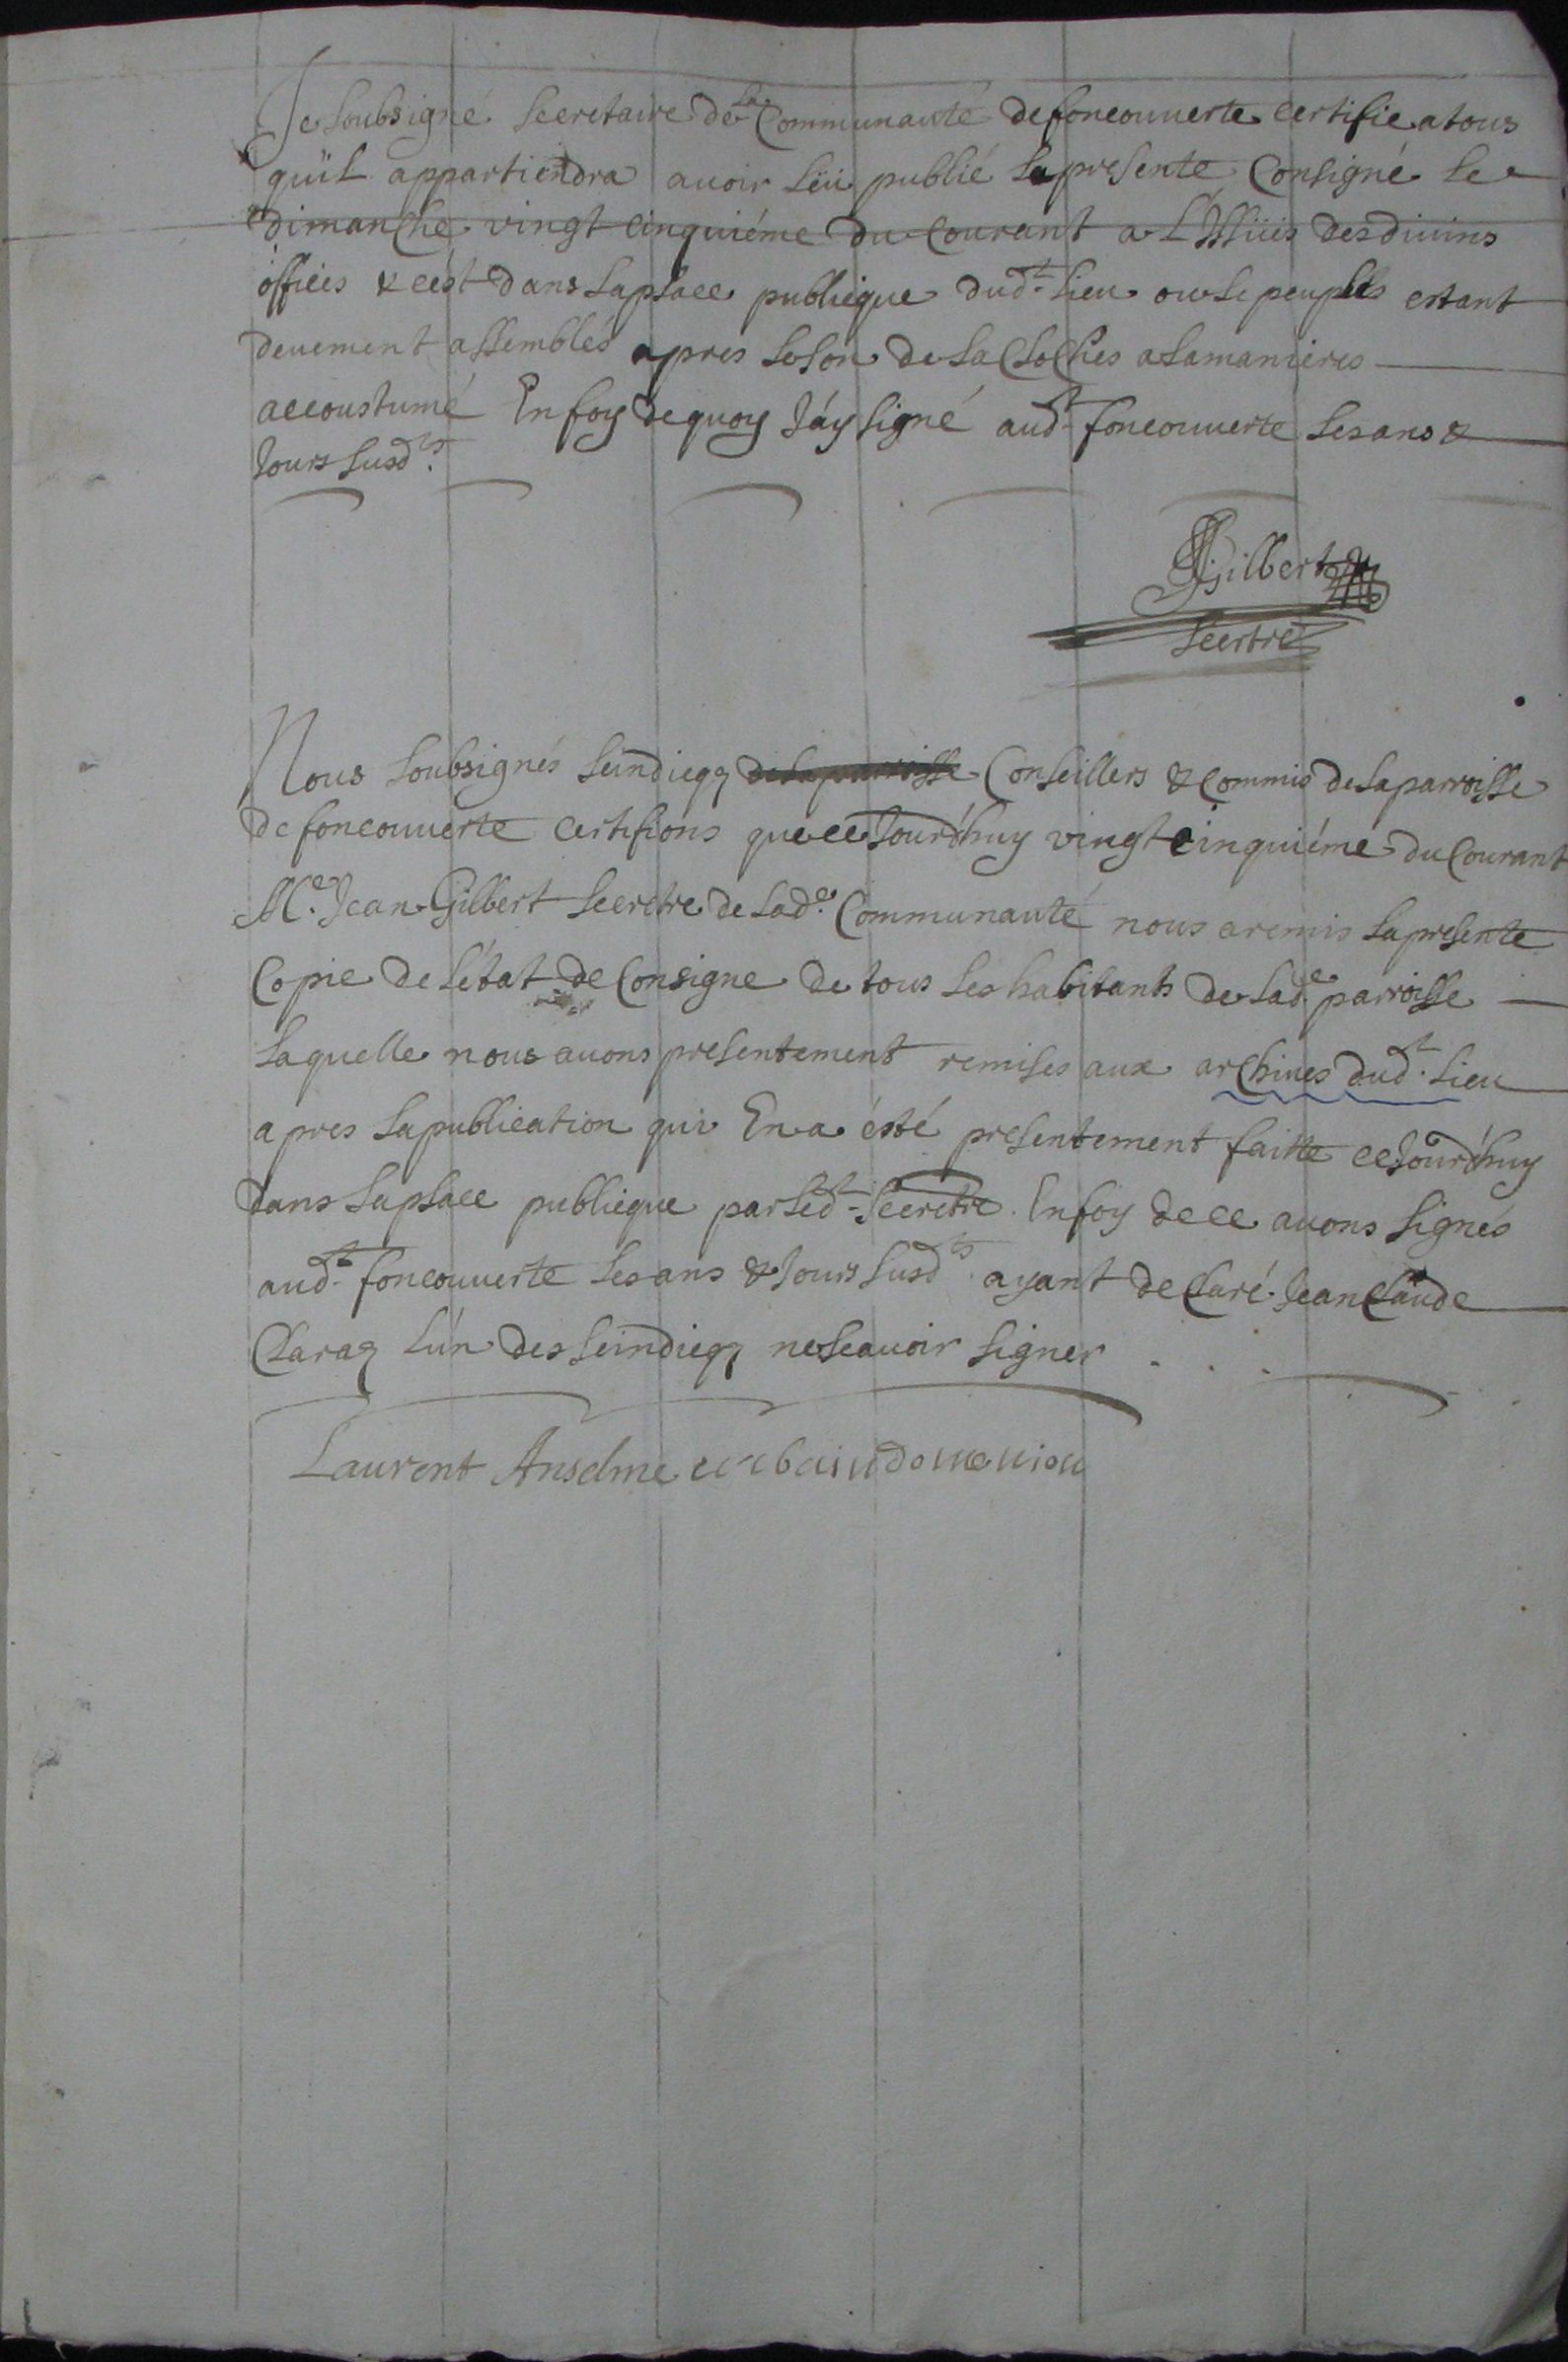 Je soubsigné secretaire de la Communauté de foncouuerte certifie a tous
quïL appartiendra auoir lëu publié la presente Consigne le
dimanche vingt cinquiéme du Courant a L'Issüe des diuins
offices & cest dans la place publicque dud.t lieu ou le peuple estant
deuement assemblés apres le son de la Cloches a la manieres
accoustumé En foy de quoy Jáy signé aud.t foncouuerte les ans &
Jours susd.ts
JGilbert
Secrtre
Nous soubsignés scindicqz Conseillers & Commis de la parroisse
de foncouuerte certifions que ce Jourd'huy vingt cinquiéme du Courant
M.e Jean Gilbert Secretre de lad.e Communauté nous a remis la presente
Copie de létat de Consigne de tous les habitants de lad.e parroisse
laquelle nous auons presentement remises aux archiues dud.t lieu
apres la publication qui En a ésté presentement faitte ce Jourd'huy
dans la place publicque par led.t Secretre. En foy de ce auons signés
aud.t foncouuerte les ans & Jours susd.ts ayant declaré Jean Claude
Claraz lún des scindicqz ne scauoir signer . . .
Laurent Anselme